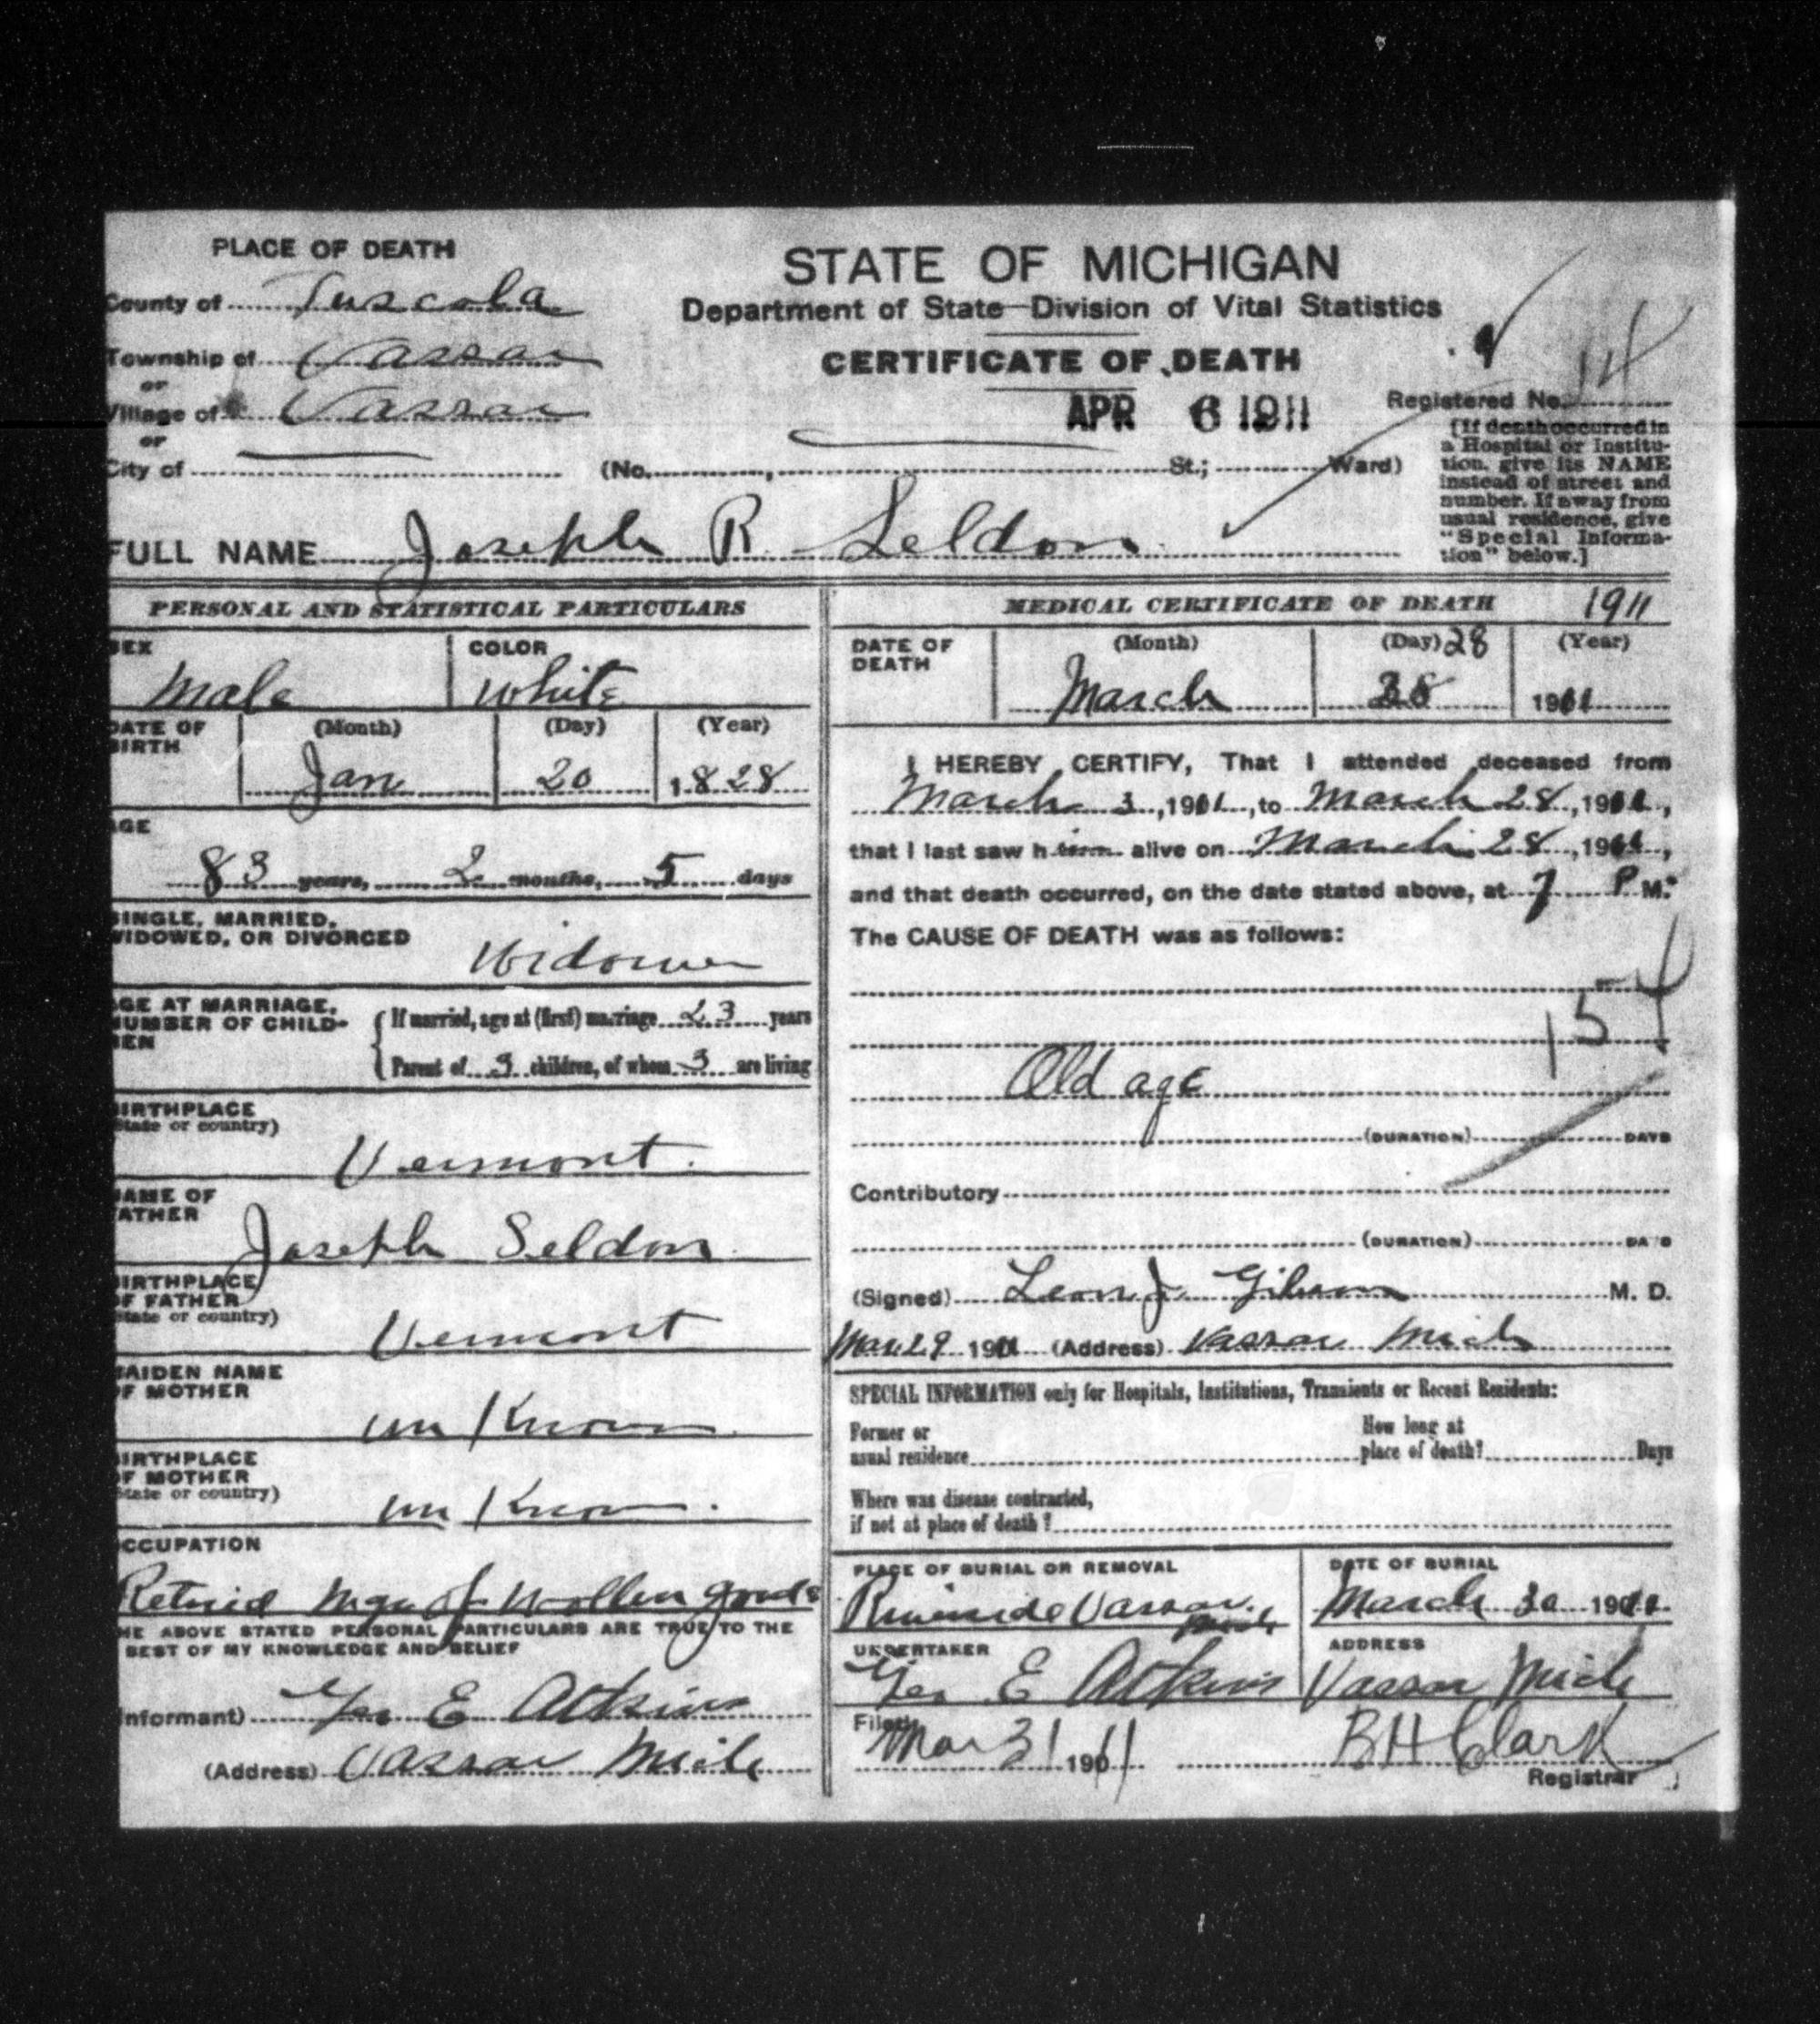 PLACE OF DEATH
County of Tuscola
Township of Vassar
or
Village of Vassar
or
City of
STATE OF MICHIGAN
Department of State—Division of Vital Statistics
CERTIFICATE OF DEATH
APR 6 1911
Registered No. 14
[If death occurred in
a Hospital or Institu-
tion, give its NAME
instead of street and
number. If away from
usual residence, give
"Special Informa-
tion" below.]
(No. , St.; Ward)
FULL NAME Joseph R. Seldon
PERSONAL AND STATISTICAL PARTICULARS
SEX
Male
COLOR
White
DATE OF
BIRTH
(Month) (Day) (Year)
Jan 20 1828
AGE
83 years, 2 months, 5 days
SINGLE, MARRIED,
WIDOWED, OR DIVORCED
Widower
AGE AT MARRIAGE,
NUMBER OF CHILD-
REN
If married, age at (first) marriage 23 years
Parent of 3 children, of whom 3 are living
BIRTHPLACE
(State or country)
Vermont.
NAME OF
FATHER
Joseph Seldon
BIRTHPLACE
OF FATHER
(State or country)
Vermont
MAIDEN NAME
OF MOTHER
un Known
BIRTHPLACE
OF MOTHER
(State or country)
un Known.
OCCUPATION
Retired of Wollen goods
THE ABOVE STATED PERSONAL PARTICULARS ARE TRUE TO THE
BEST OF MY KNOWLEDGE AND BELIEF
(Informant) Geo E Atkins
(Address) Vassar Mich
MEDICAL CERTIFICATE OF DEATH 1911
DATE OF
DEATH
(Month) (Day) 28 (Year)
March 28 1911
I HEREBY CERTIFY, That I attended deceased from
March 3, 1911, to March 28, 1911,
that I last saw h im alive on March 28, 1911,
and that death occurred, on the date stated above, at 7 P M.
The CAUSE OF DEATH was as follows:
154
Old age
(DURATION) DAYS
Contributory
(DURATION) DAYS
(Signed) Leon J. Gibson M. D.
Mar. 29 1911 (Address) Vassar Mich
SPECIAL INFORMATION only for Hospitals, Institutions, Transients or Recent Residents:
Former or
usual residence
How long at
place of death? Days
Where was disease contracted,
if not at place of death?
PLACE OF BURIAL OR REMOVAL
Riverside Vassar. Mich
DATE OF BURIAL
March 30 1911
UNDERTAKER
Geo E Atkins
ADDRESS
Vassar Mich
Filed
Mar 31 1911 B H Clark
Registrar